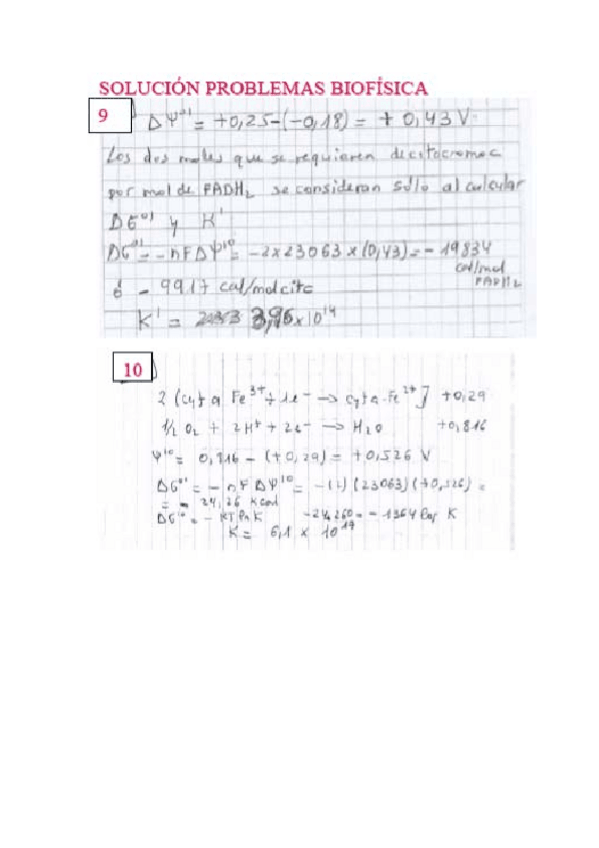 SOLUCIÓN PROBLEMAS BIOFÍSICA
9
Δψ°' = +0,25-(-0,18) = + 0,43 V.
Los dos moles que se requieren de citocromo c
por mol de FADH₂ se consideran sólo al calcular
ΔG°' y K'
ΔG°' = -nFΔψ'° = -2x23063x(0,43) = - 19834
cal/mol
FADH₂
ó - 9917 cal/mol cit c
K' = 3,96x10¹⁴
10
2 (cyt a Fe³⁺ + 1e⁻ → cyt a-Fe²⁺] +0,29
1/2 O₂ + 2H⁺ + 2e⁻ → H₂O +0,816
ψ'° = 0,816 - (+0,29) = +0,526 V
ΔG°' = - nFΔψ'° = -(2)(23063)(+0,526) =
= - 24,26 Kcal
ΔG'° = - RT ln K -24,260 = - 1364 log K
K = 6,1 x 10¹⁷